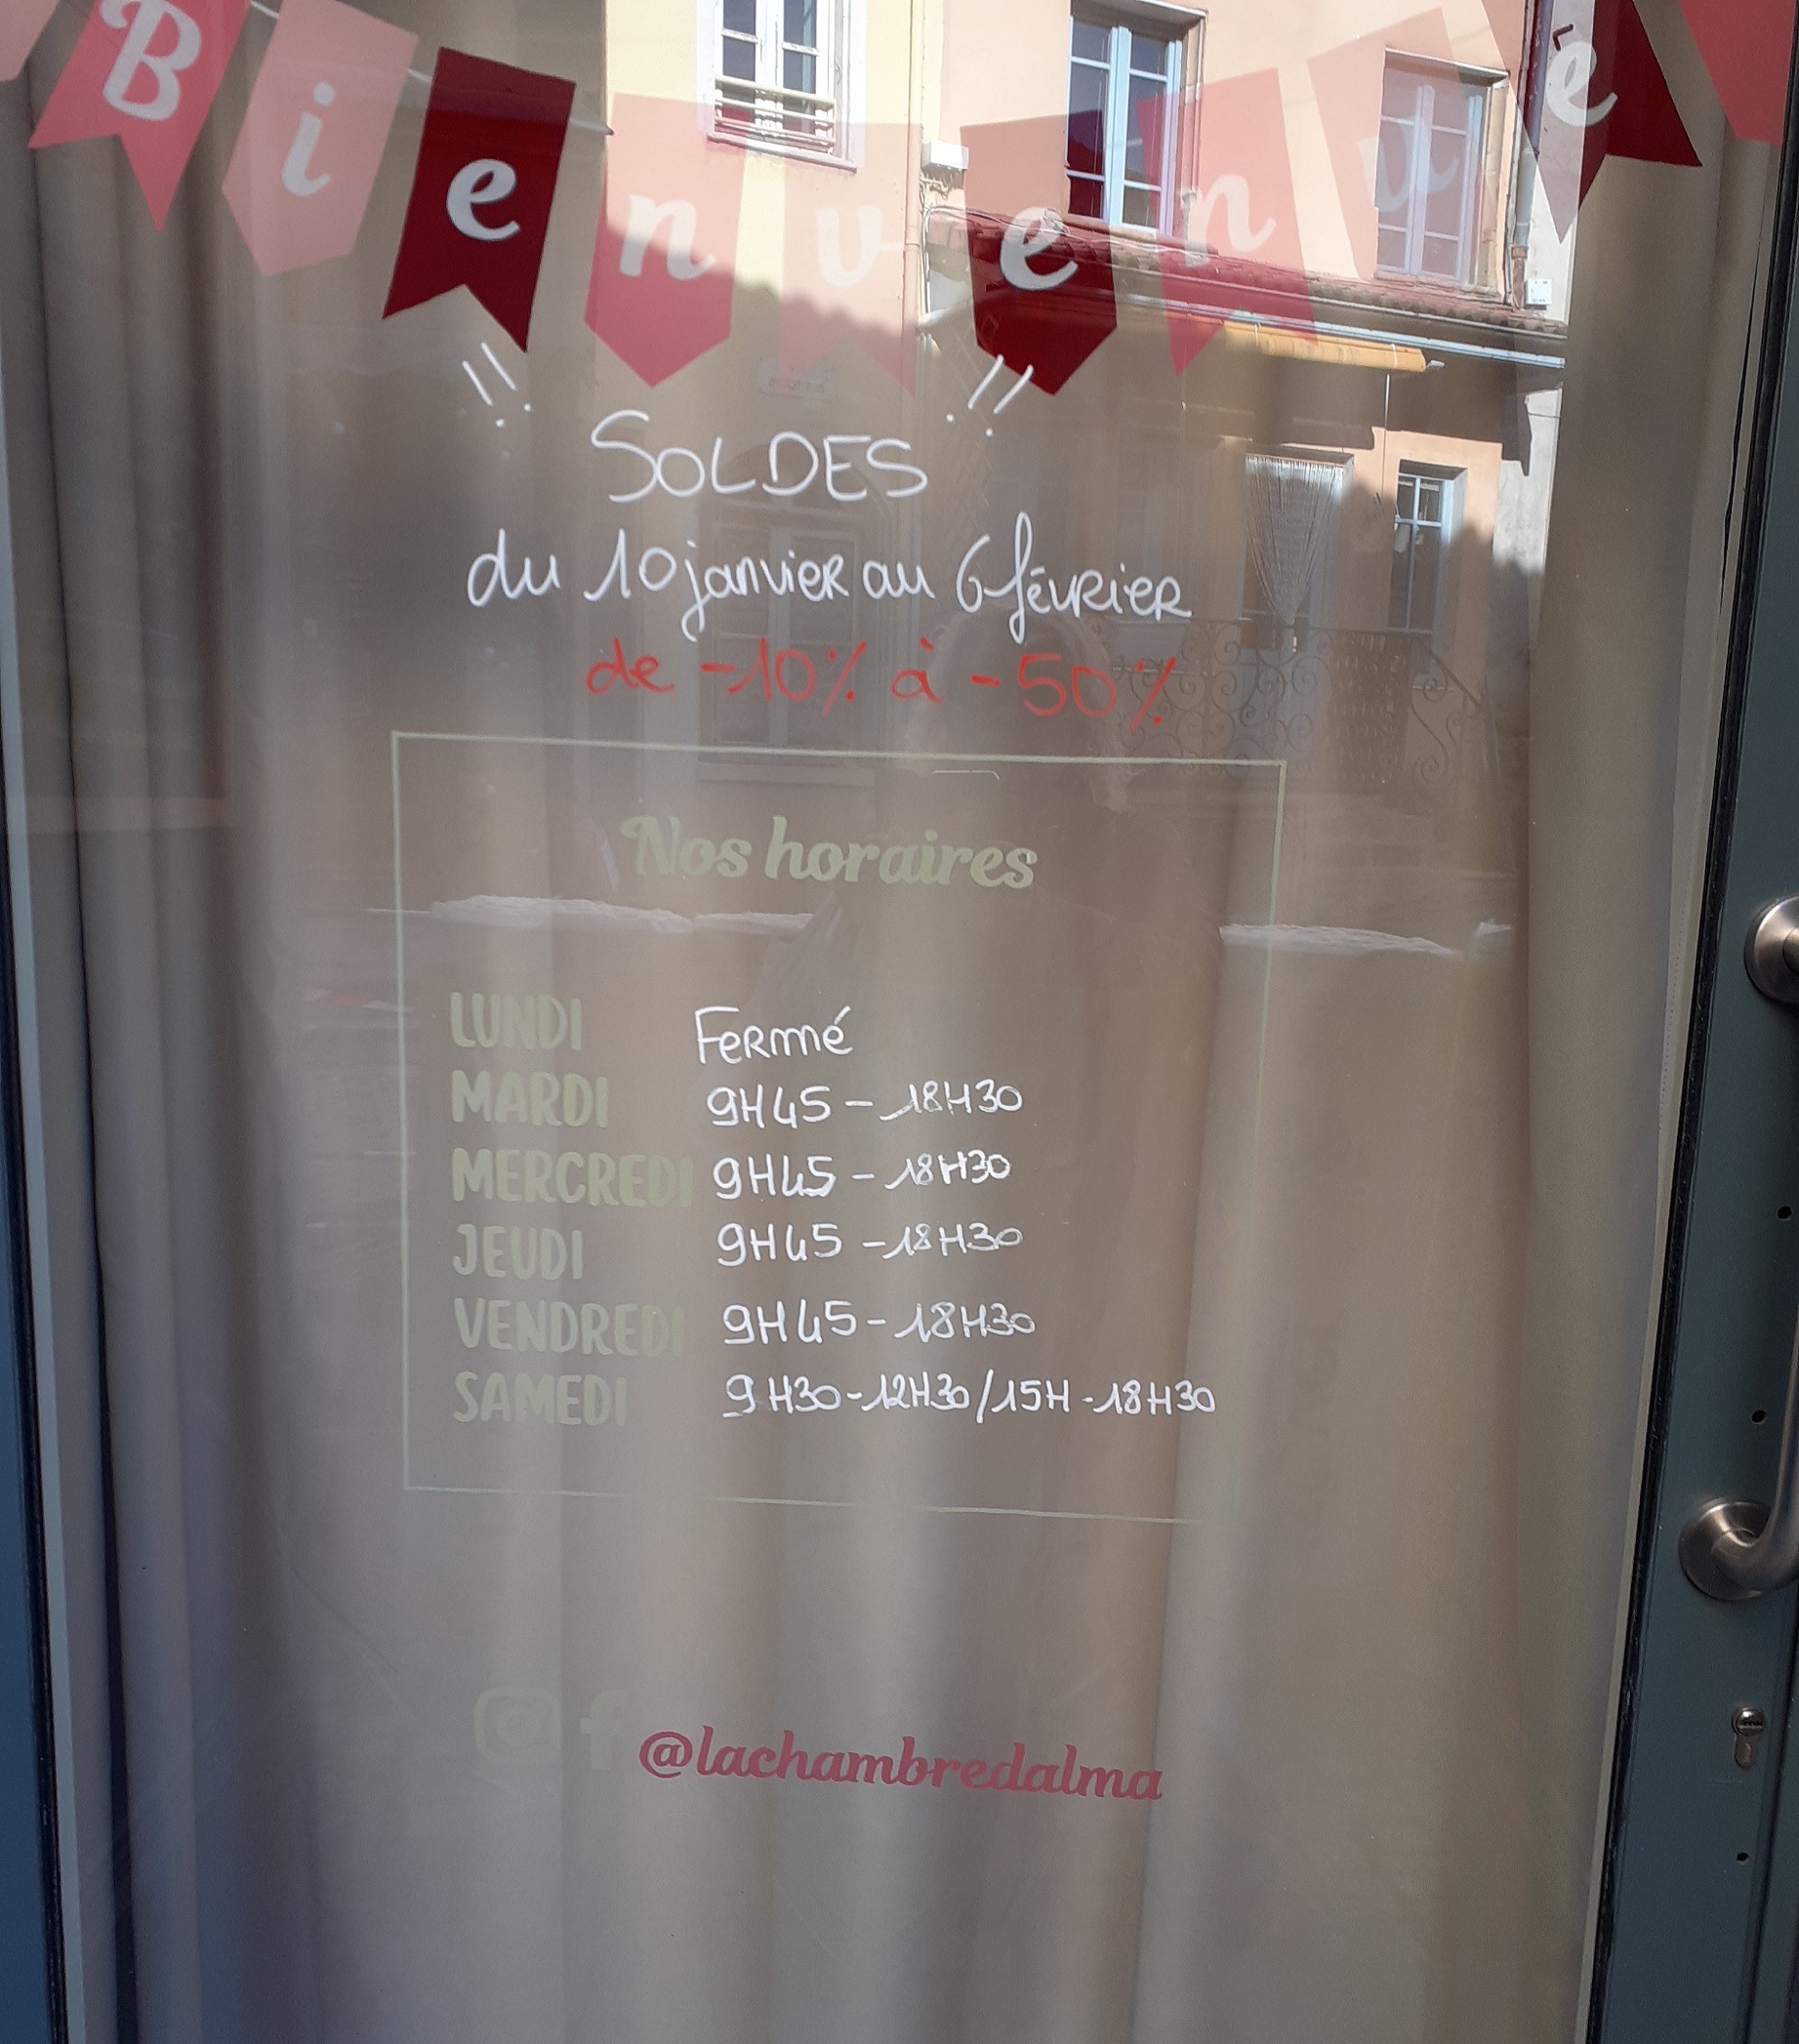 Bienvenue
!! SOLDES !!
du 10 janvier au 6 février
de -10% à -50%
Nos horaires
LUNDI Fermé
MARDI 9H45 - 18H30
MERCREDI 9H45 - 18H30
JEUDI 9H45 - 18H30
VENDREDI 9H45 - 18H30
SAMEDI 9H30 - 12H30 / 15H - 18H30
@lachambredalma